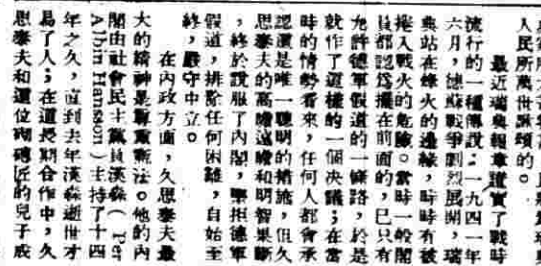 人民所萬世景頌的。
最近瑞典報章證實了戰時
流行的一種傳說：一九四一年
六月，德蘇戰爭劇烈展開，瑞
典站在烽火的邊緣，時時有被
捲入戰火的危險。當時一般閣
員都認爲擺在前面的，已只有
允許德軍假道的一條路，於是
就作了這樣的一個決議；在當
時的情勢看來，任何人都會承
認這是唯一聰明的措施，但久
思泰夫的高瞻遠矚和明智果斷
，終於說服了內閣，堅拒德軍
假道，排除任何困難，自始至
終，嚴守中立。
在內政方面，久思泰夫最
大的精神是尊重憲法。他的內
閣由社會民主黨員漢森（Per
Albin Hansson）主持了十四
年之久，直到去年漢森逝世才
易了人；在這長期合作中，久
思泰夫和這位砌磚匠的兒子成